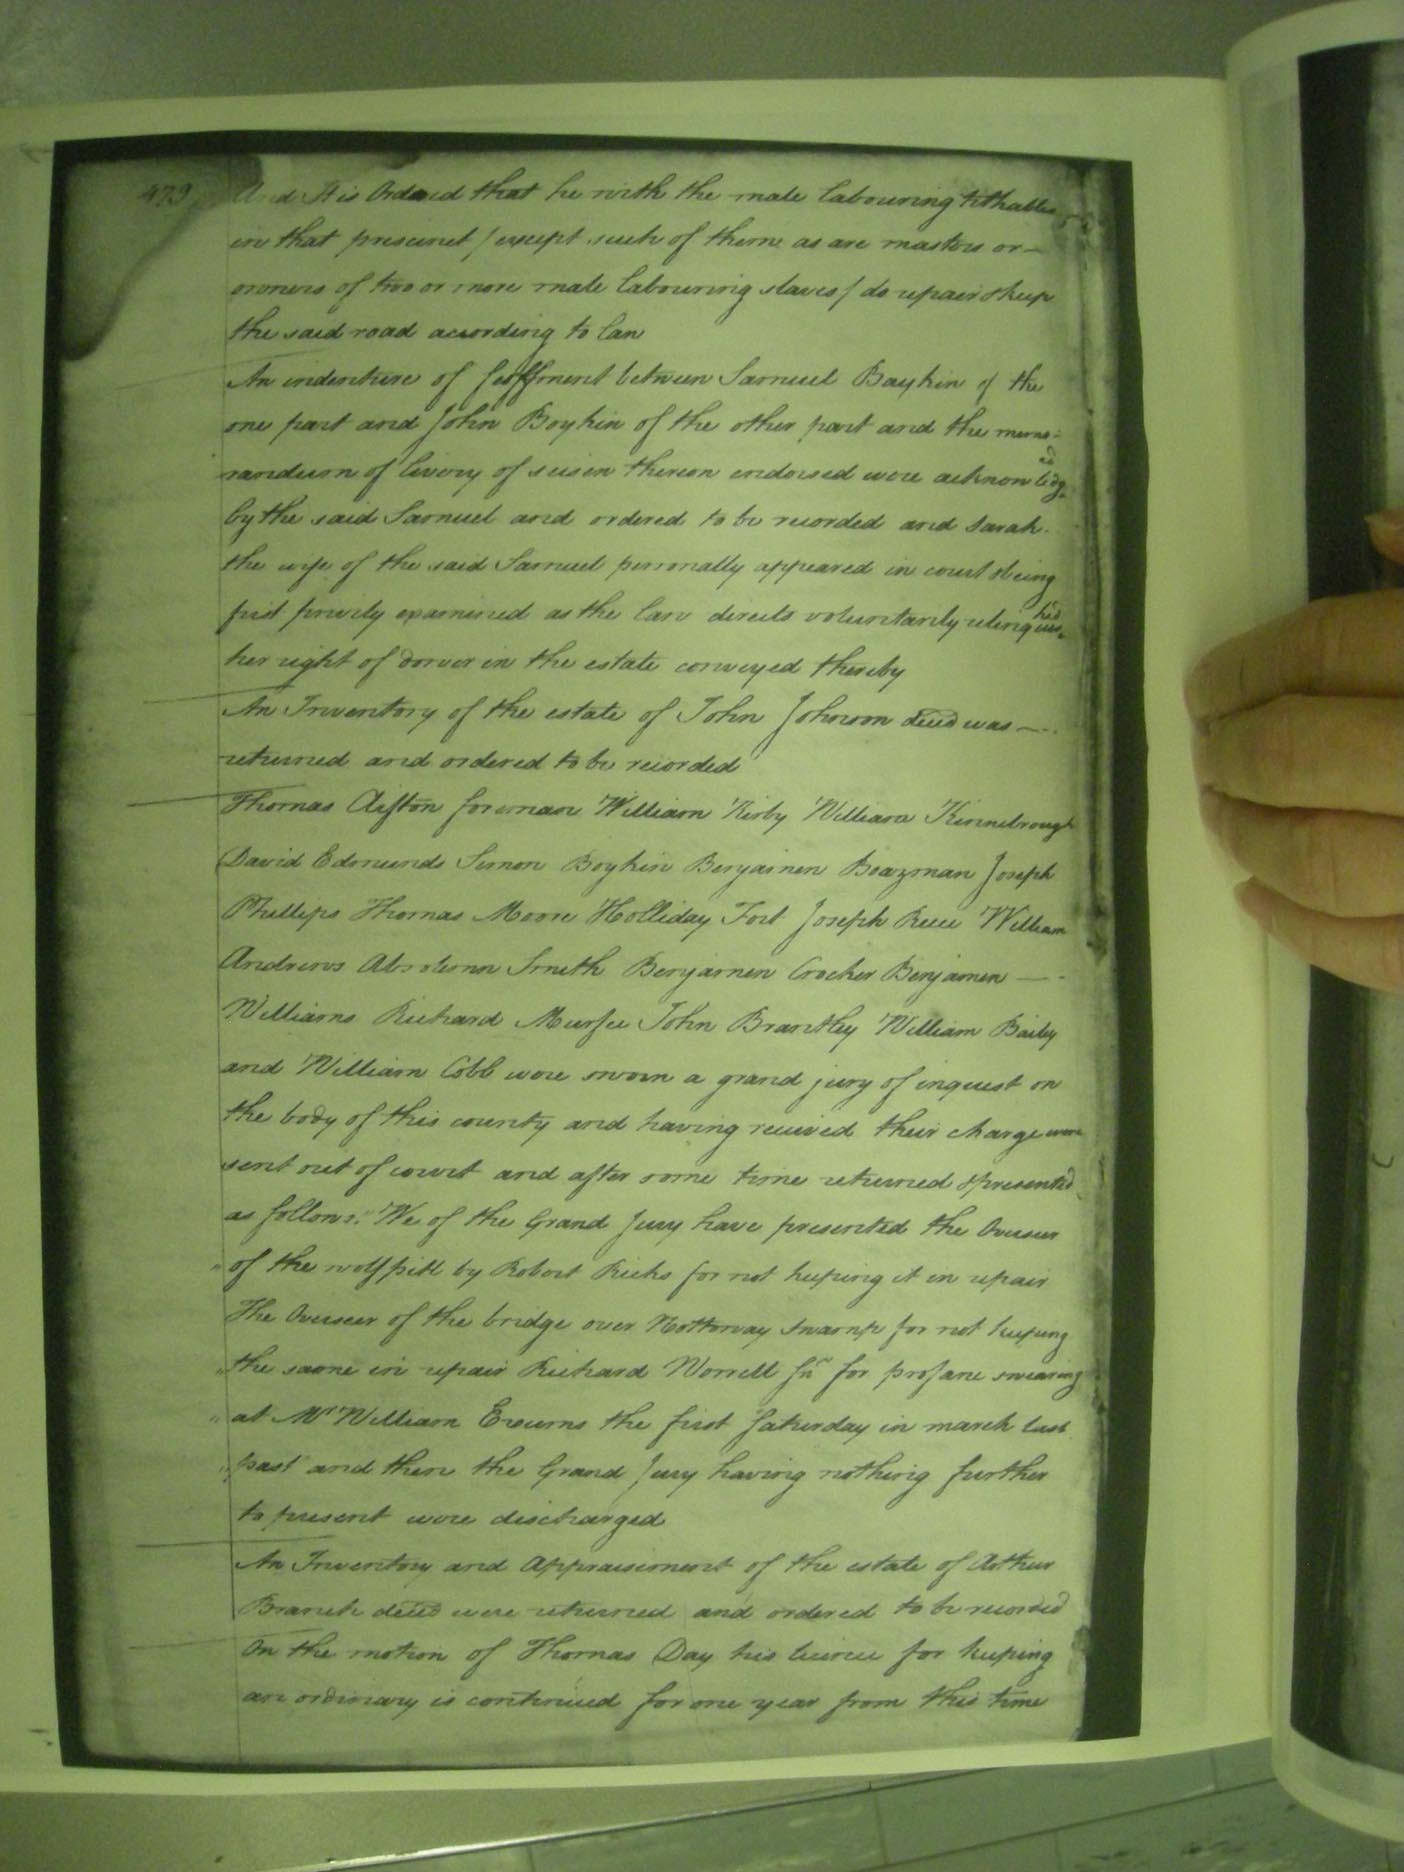 479 And It is Ordered that he with the male labouring tithables
in that precinct (except such of them as are masters or
owners of two or more male labouring slaves) do repair & keep
the said road according to law
An indenture of feoffment between Samuel Boykin of the
one part and John Boykin of the other part and the memo-
randum of livery of seisin thereon endorsed were acknowledged
by the said Samuel and ordered to be recorded and Sarah
the wife of the said Samuel personally appeared in court & being
first privily examined as the law directs voluntarily relinquished
her right of dower in the estate conveyed thereby
An Inventory of the estate of John Johnson deced was
returned and ordered to be recorded
Thomas Clifton foreman William Kirby William Kinnebrough
David Edmunds Simon Boykin Benjamen Boazman Joseph
Phillips Thomas Moore Holliday Fort Joseph Reece William
Andrews Absolemn Smith Benjamen Crocker Benjamen
Williams Richard Murfee John Brantley William Bailey
and William Cobb were sworn a grand jury of inquest on
the body of this county and having received their charge were
sent out of court and after some time returned & presented
as follows: "We of the Grand Jury have presented the Overseer
" of the wolfpitt by Robert Ricks for not keeping it in repair
The Overseer of the bridge over Nottoway swamp for not keeping
" the same in repair Richard Worrell Jnr for profane swearing
" at Mr William the first Saturday in march last
" past and then the Grand Jury having nothing further
to present were discharged
An Inventory and Appraisement of the estate of Arthur
Branch deced were returned and ordered to be recorded
On the motion of Thomas Day his licence for keeping
an ordinary is continued for one year from this time